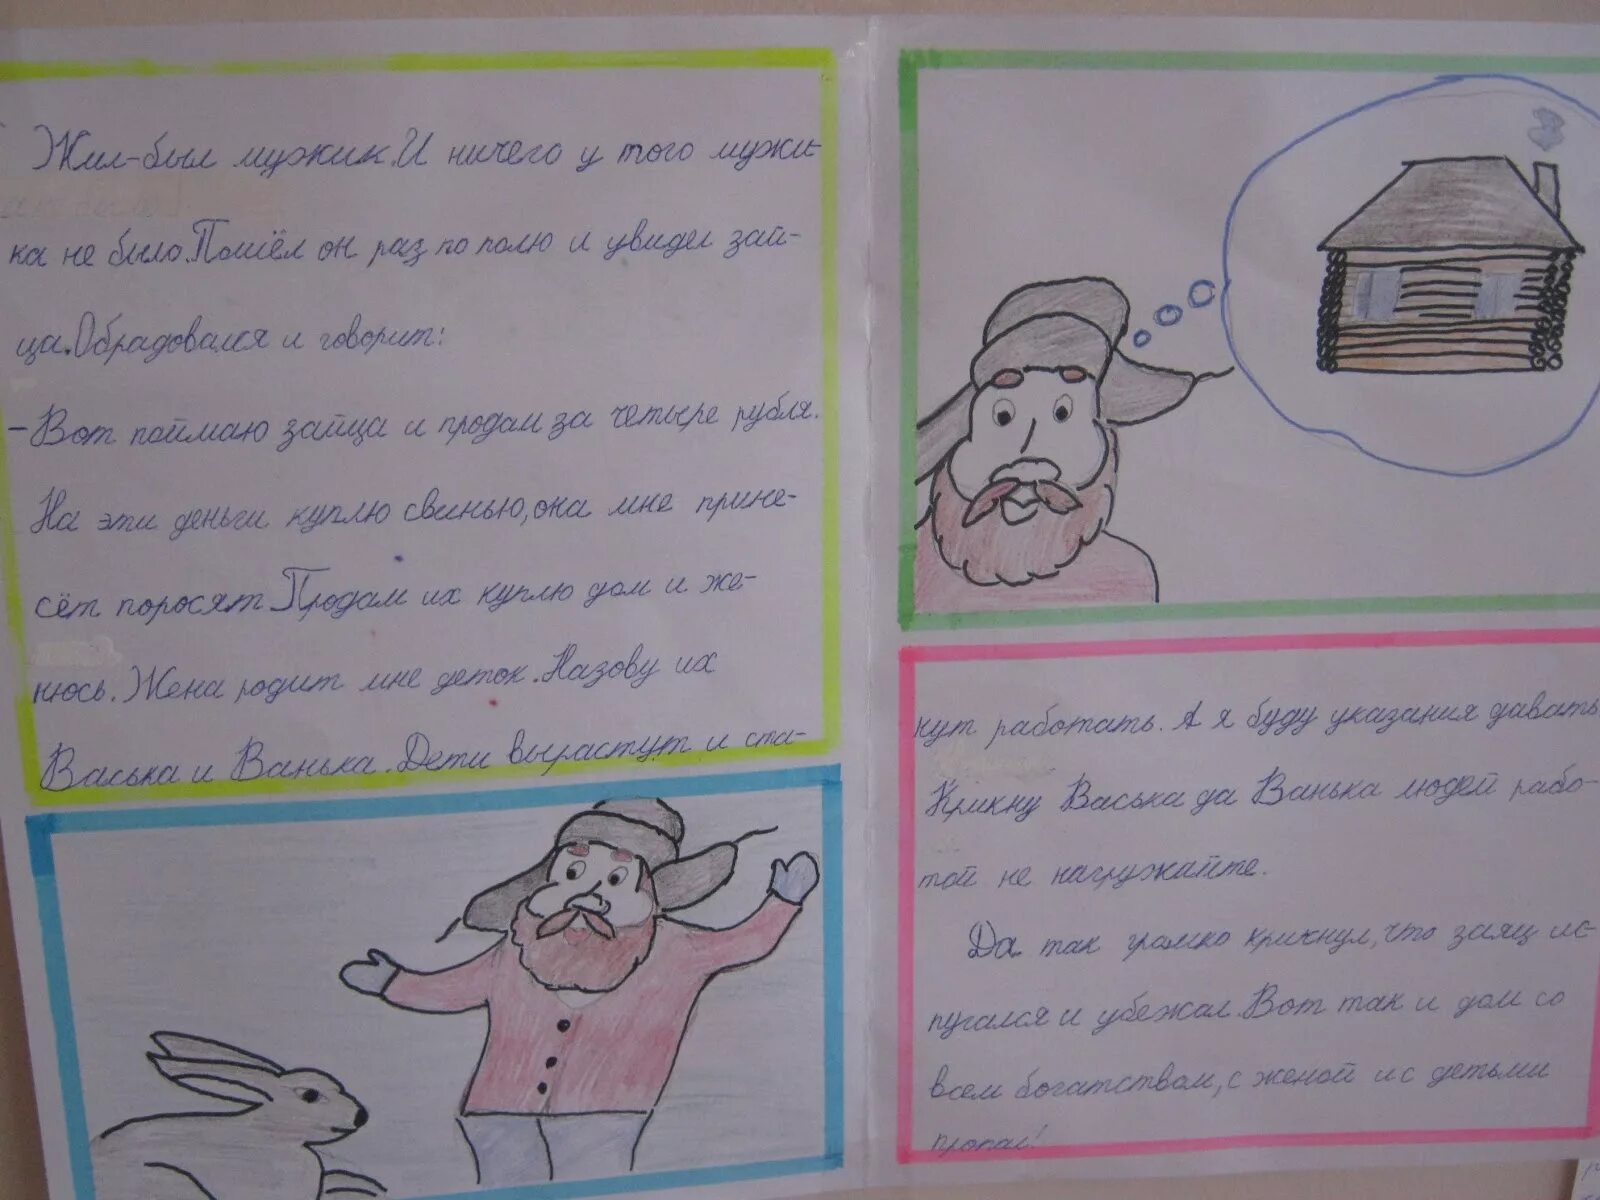 Жил-был мужик. И ничего у того мужи-
ка не было. Пошёл он раз по полю и увидел зай-
ца. Обрадовался и говорит:
- Вот поймаю зайца и продам за четыре рубля.
На эти деньги куплю свинью, она мне прине-
сёт поросят. Продам их куплю дом и же-
нюсь. Жена родит мне деток. Назову их
Васька и Ванька. Дети вырастут и ста-
нут работать. А я буду указания давать
Крикну Васька да Ванька людей рабо-
той не нагружайте.
Да так громко крикнул, что заяц ис-
пугался и убежал. Вот так и дом со
всем богатством, с женой и с детьми
пропал!